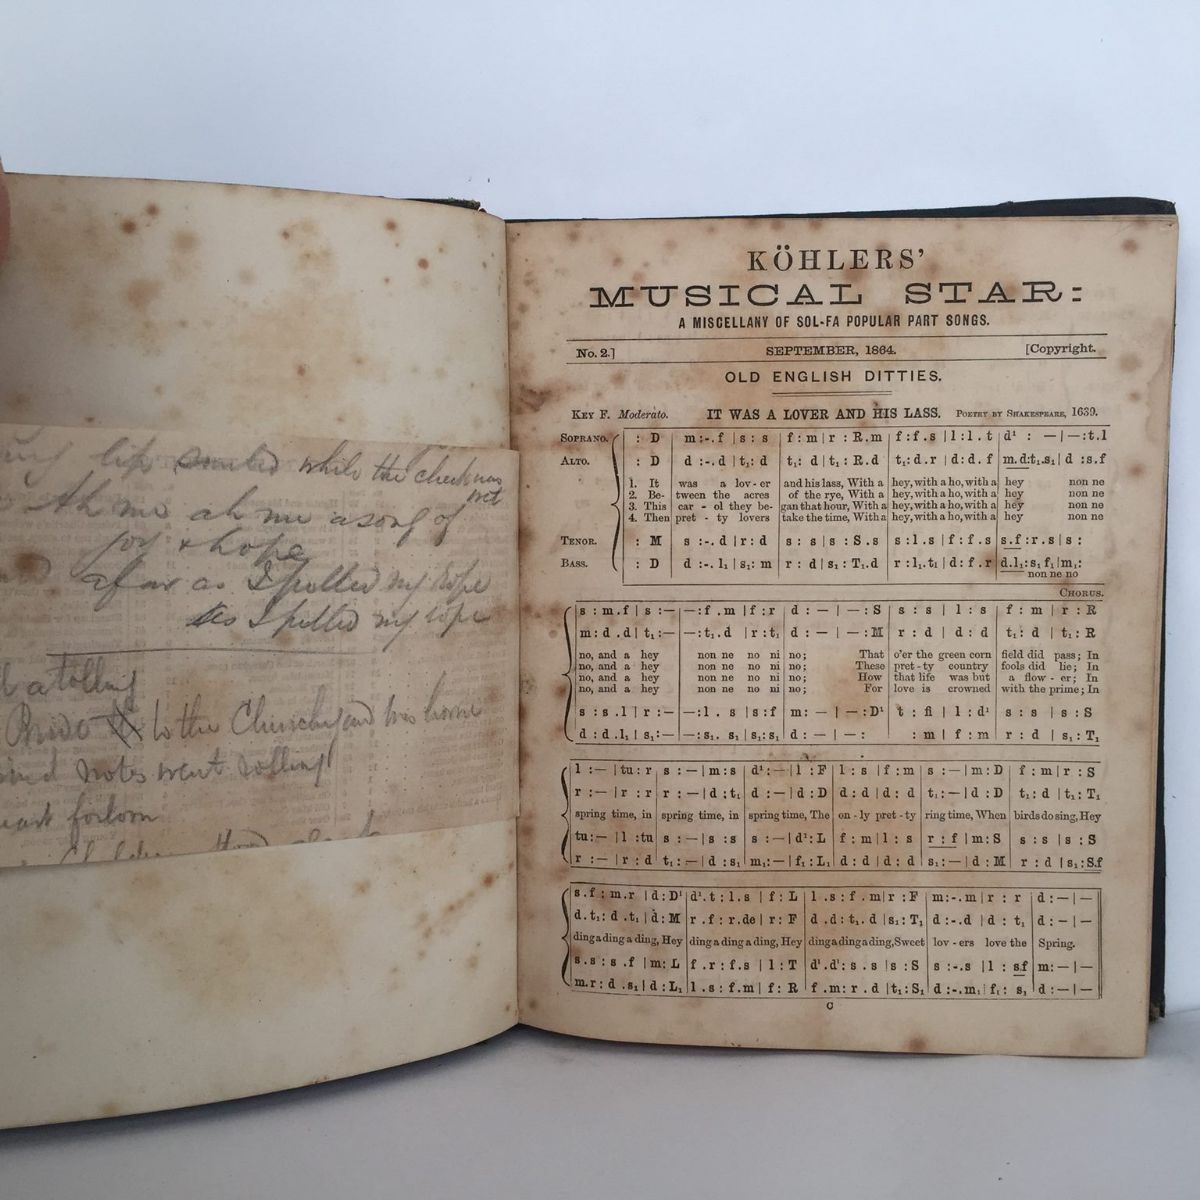 lips smiled while the cheek was
wet
Ah me ah me a song of
joy & hope
afar as I pulled my rope
As I pulled my rope
a tolling
to the Churchyard his home
notes went rolling
forlorn
KÖHLERS'
MUSICAL STAR:
A MISCELLANY OF SOL-FA POPULAR PART SONGS.
No. 2.] SEPTEMBER, 1864. [Copyright.
OLD ENGLISH DITTIES.
KEY F. Moderato. IT WAS A LOVER AND HIS LASS. POETRY BY SHAKESPEARE, 1639.
SOPRANO. : D m :-. f | s : s f : m | r : R.m f : f . s | l : l . t d¹ : — | — : t.l
ALTO. : D d :-. d | t₁ : d t₁ : d | t₁ : R.d t₁ : d.r | d : d. f m.d:t₁.s₁ | d :s.f
1. It was a lov - er and his lass, With a hey, with a ho, with a hey non ne
2. Be- tween the acres of the rye, With a hey, with a ho, with a hey non ne
3. This car - ol they be- gan that hour, With a hey, with a ho, with a hey non ne
4. Then pret - ty lovers take the time, With a hey, with a ho, with a hey non ne
TENOR. : M s :-. d | r : d s : s | s : S.s s : l . s | f : f . s s.f : r.s | s :
BASS. : D d :-. l₁ | s₁ : m r : d | s₁ : T₁.d r : l₁.t₁ | d : f . r d.l₁:s₁.f₁ | m₁:
non ne no
CHORUS.
s : m.f | s :— — : f . m | f : r d : — | — : S s : s | l : s f : m | r : R
m : d . d | t₁ :— — : t₁.d | r : t₁ d : — | — : M r : d | d : d t₁ : d | t₁ : R
no, and a hey non ne no ni no; That o'er the green corn field did pass; In
no, and a hey non ne no ni no; These pret - ty country fools did lie; In
no, and a hey non ne no ni no; How that life was but a flow - er; In
no, and a hey non ne no ni no; For love is crowned with the prime; In
s : s . l | r :— — : l . s | s : f m : — | — : D¹ t : fi | l : d¹ s : s | s : S
d : d . l₁ | s₁ :— — : s₁. s₁ | s₁ : s₁ d : — | — : : m | f : m r : d | s₁ : T₁
l :— | tu : r s :— | m : s d¹ :— | l : F l : s | f : m s :— | m : D f : m | r : S
r :— | r : r r :— | d : t₁ d :— | d : D d : d | d : d t₁ :— | d : D t₁ : d | t₁ : T₁
spring time, in spring time, in spring time, The on - ly pret - ty ring time, When birds do sing, Hey
tu :— | l : tu s :— | s : s s :— | d¹ : L f : m | l : s r : f | m : S s : s | s : S
r :— | r : d t₁ :— | d : s₁ m₁ :— | f₁ : L₁ d : d | d : d s₁ :— | d : M r : d | s₁ : S.f
s . f : m . r | d : D¹ d¹. t : l . s | f : L l . s : f . m | r : F m :-. m | r : r d : — | —
d . t₁ : d . t₁ | d : M r . f : r . de | r : F d . d : t₁. d | s₁ : T₁ d :-. d | d : t₁ d : — | —
ding a ding a ding, Hey ding a ding a ding, Hey ding a ding a ding, Sweet lov - ers love the Spring.
s . s : s . f | m : L f . r : f . s | l : T d¹. d¹ : s . s | s : S s :-. s | l : s.f m : — | —
m . r : d . s₁ | d : L₁ l . s : f . m | f : R f . m : r . d | t₁ : S₁ d :-. m₁ | f₁ : s₁ d : — | —
C